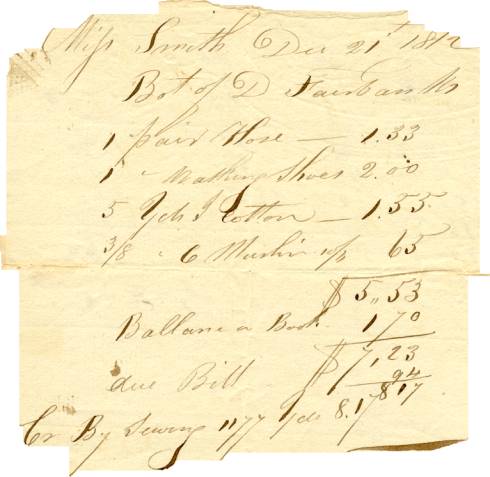 Miss Smith Dec 21st 1812
Bot of D Fairbanks
1 pair Hose — 1.33
1 " Walking Shoes 2.00
5 Yds Cotton — 1.55
3/8 " 6 Muslin 65
$5,,53
Ballance Book 170
$7,23
due Bill 94
817
Cr By Sewing 1177 Yds 8.17